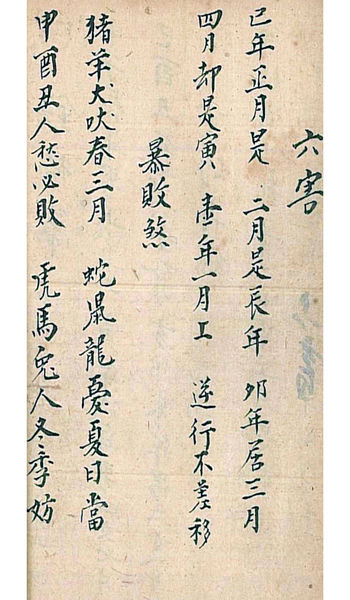 六害
已年正月是 二月是辰年 卯年居三月
四月却是寅 壹年一月工 逆行不差移
暴敗煞
猪羊犬吠春三月 蛇鼠龍憂夏日當
申酉丑人愁必敗 虎馬兔人冬季妨